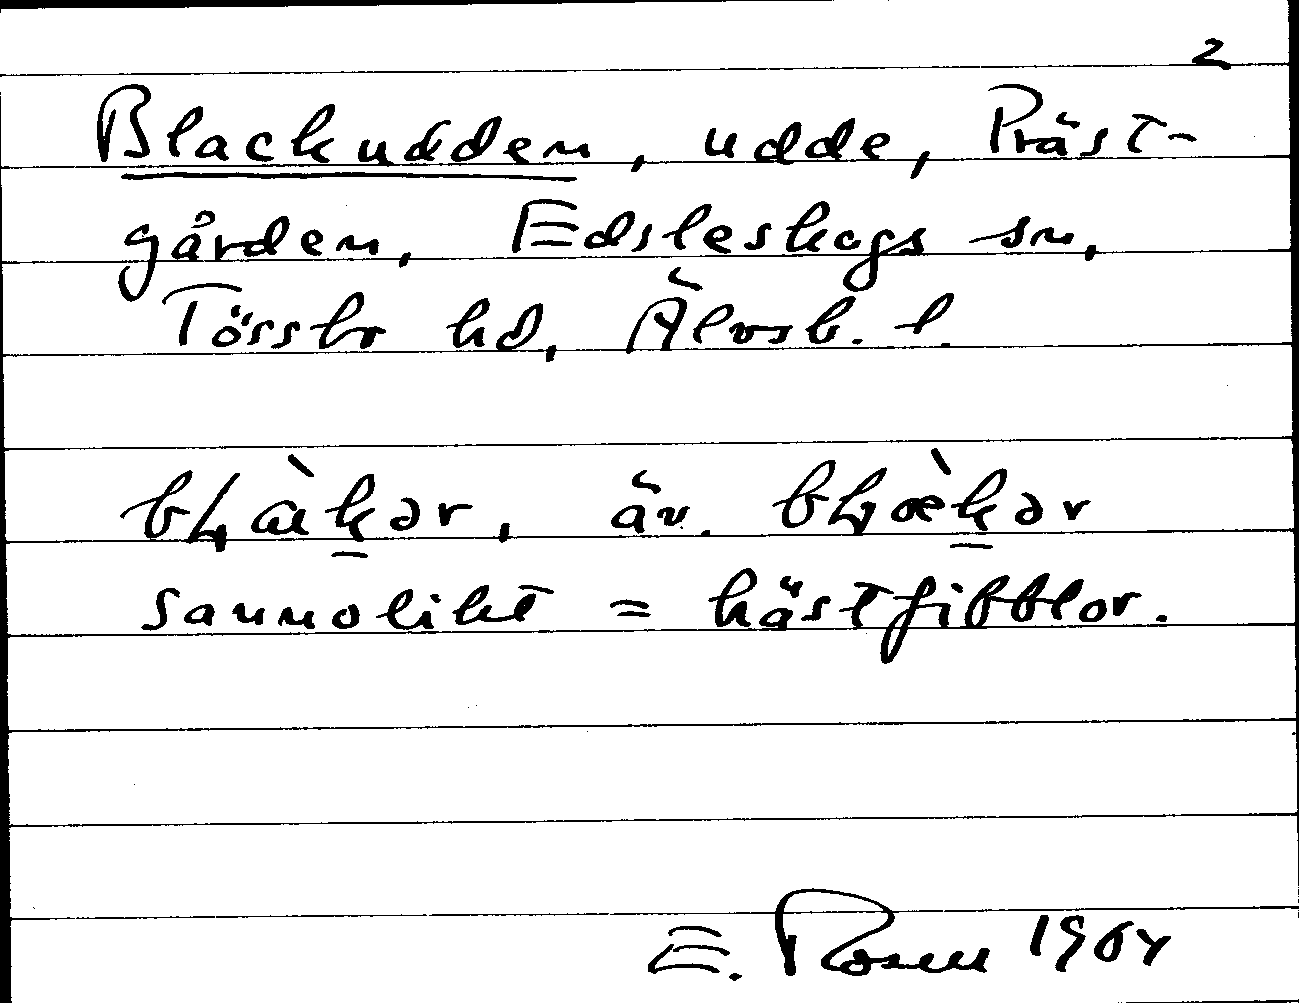 2
Blackudden, udde, Präst-
gården, Edsleskogs sn,
Tössbo hd, Älvsb. l.
sannolikt = hästfibblor.
E. Rosell 1964